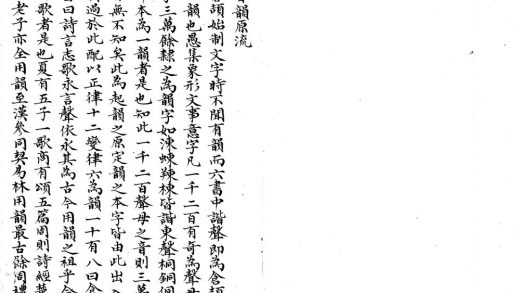 音韻原流
頡始制文字時不聞有韻而六書中諧聲即為倉頡
韻也愚集象形文事意字凡一千二百有奇為聲母
字三萬餘隸之為韻字如涷蝀䍶棟皆諧東聲桐銅侗
本為一韻者是也知此一千二百聲母之音則三萬
無不知矣此為起韻之原定韻之本字皆由此出
過於此配以正律十二變律六為韻一十有八曰倉
曰詩言志歌永言聲依永其為古今用韻之祖乎
歌者是也夏有五子一歌商有頌五篇周則詩經楚
老子亦全用韻至漢參同契易林用韻最古餘周禮